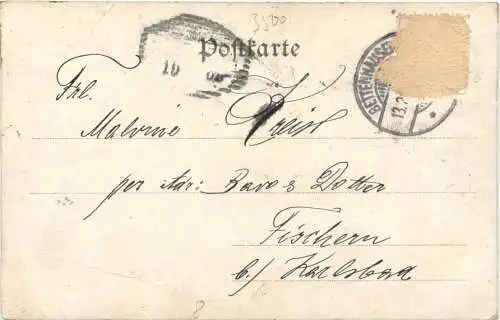 3500
Postkarte
10
BETTENHAUSE
13.2
Frl.
Malvine Kreisl
per Adr: Bavo & Dotter
Fischern
b./ Karlsbad
8